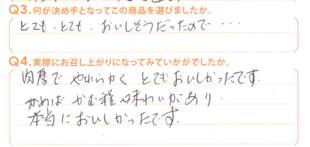 Q3.何が決め手となってこの商品を選びましたか。
とても、とても、おいしそうだったので・・・
Q4.実際にお召し上がりになってみていかがでしたか。
肉厚で やわらかく とてもおいしかったです.
かめば かむ程 味わいがあり.
本当においしかったです.